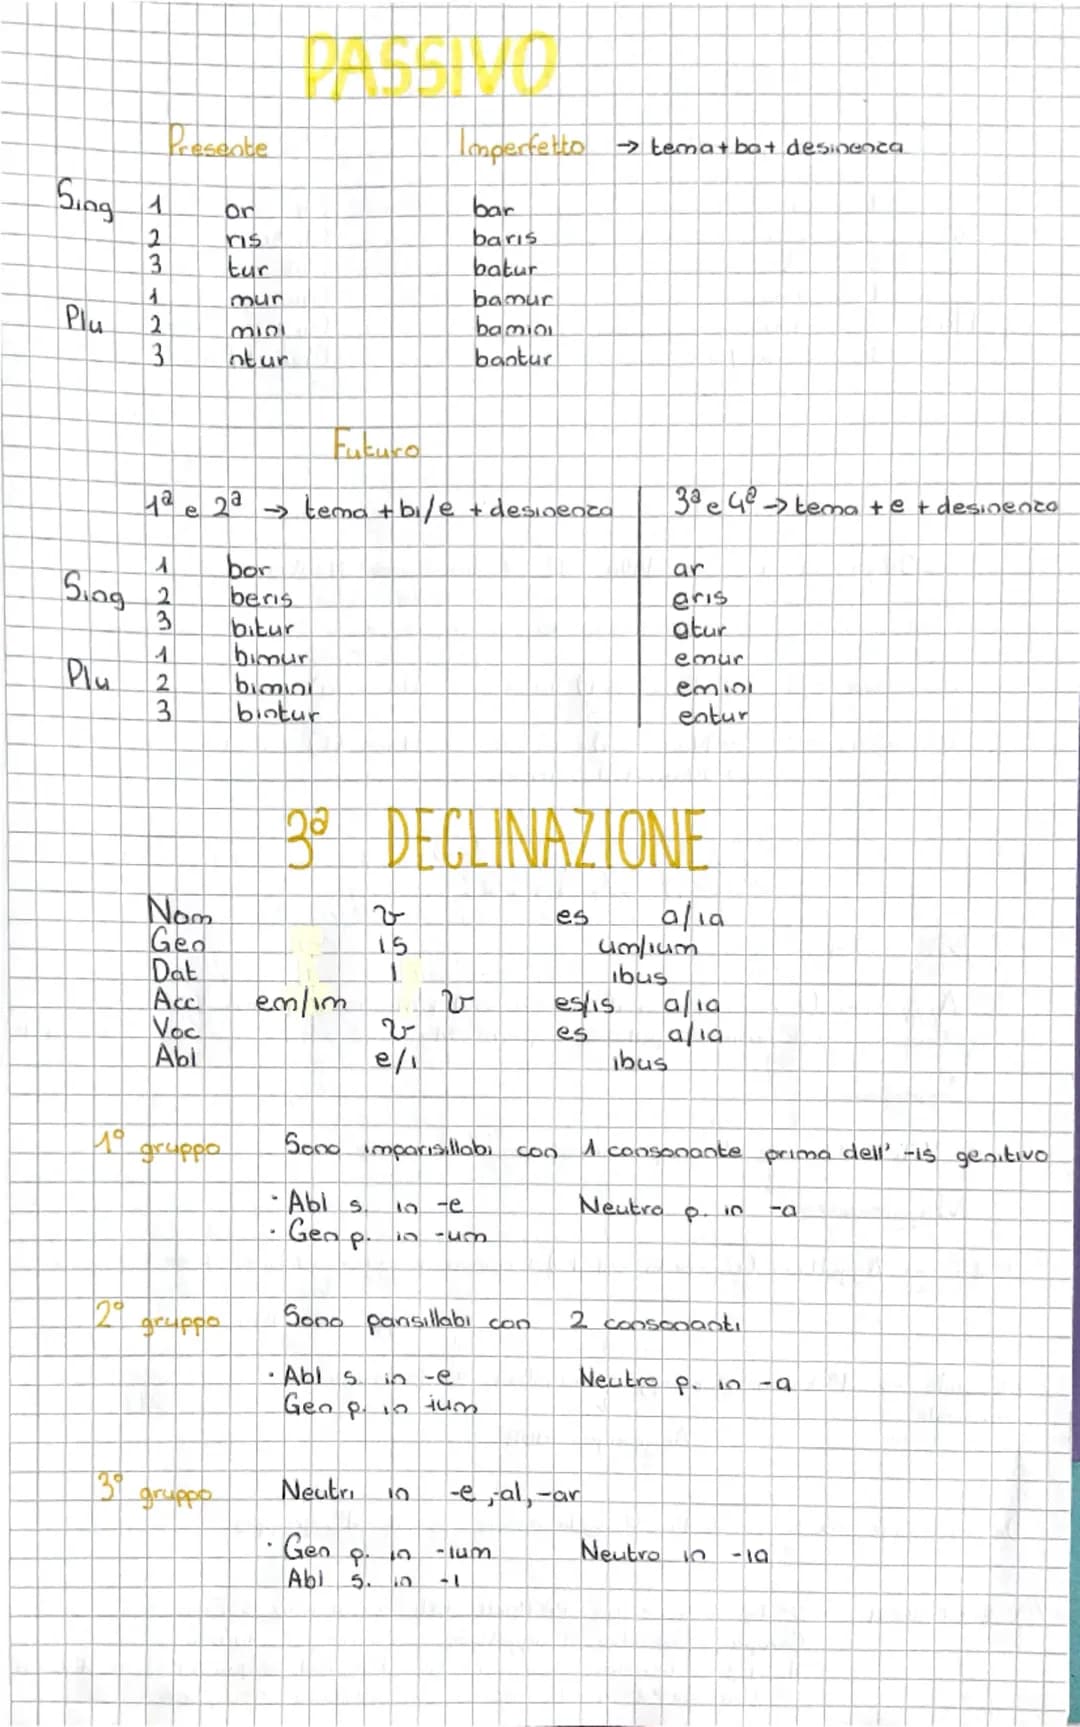 PASSIVO
Presente Imperfetto → tema+ba+ desinenca
Sing 1 or bar
2 ris baris
3 tur batur
1 mur bamur
Plu 2 mini bamini
3 ntur bantur
Futuro
1ª e 2ª → tema +bi/e + desinenza 3ª e 4ª → tema + e + desinenza
1 bor ar
Sing 2 beris eris
3 bitur etur
1 bimur emur
Plu 2 bimini emini
3 bintur entur
3ª DECLINAZIONE
Nom v es a/ia
Gen is um/ium
Dat i ibus
Acc em/im v es/is a/ia
Voc v es a/ia
Abl e/i ibus
1º gruppo Sono imparisillabi con 1 consonante prima dell' -is genitivo
· Abl s. in -e Neutro p. in -a
· Gen p. in -um
2º gruppo Sono parisillabi con 2 consonanti
· Abl s. in -e Neutro p. in -a
Gen p. in ium
3º gruppo Neutri in -e,-al,-ar
· Gen p. in -ium Neutro in -ia
Abl s. in -i